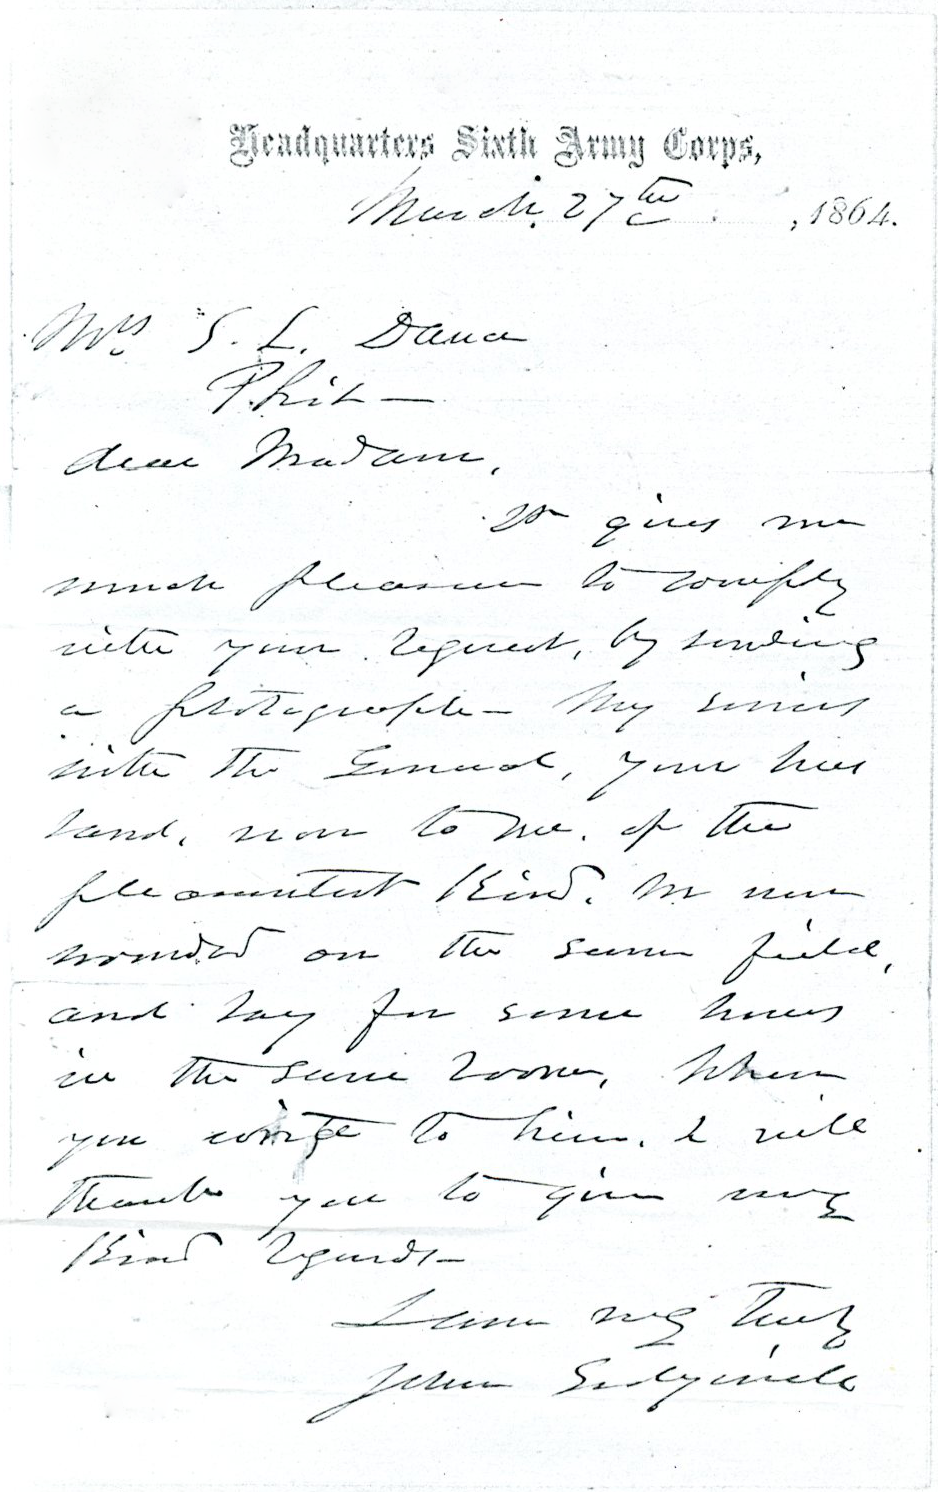 Headquarters Sixth Army Corps,
March 27th , 1864.
Mrs S. L. Dana
Phil—
dear Madam,
It gives me
much pleasure to comply
with your request, by sending
a photograph— My service
with the General, your hus
band, was to me, of the
pleasantest kind. We were
wounded on the same field,
and lay for some hours
in the same room, When
you write to him, I will
thank you to give my
kind regards—
I am very truly
John Sedgwick